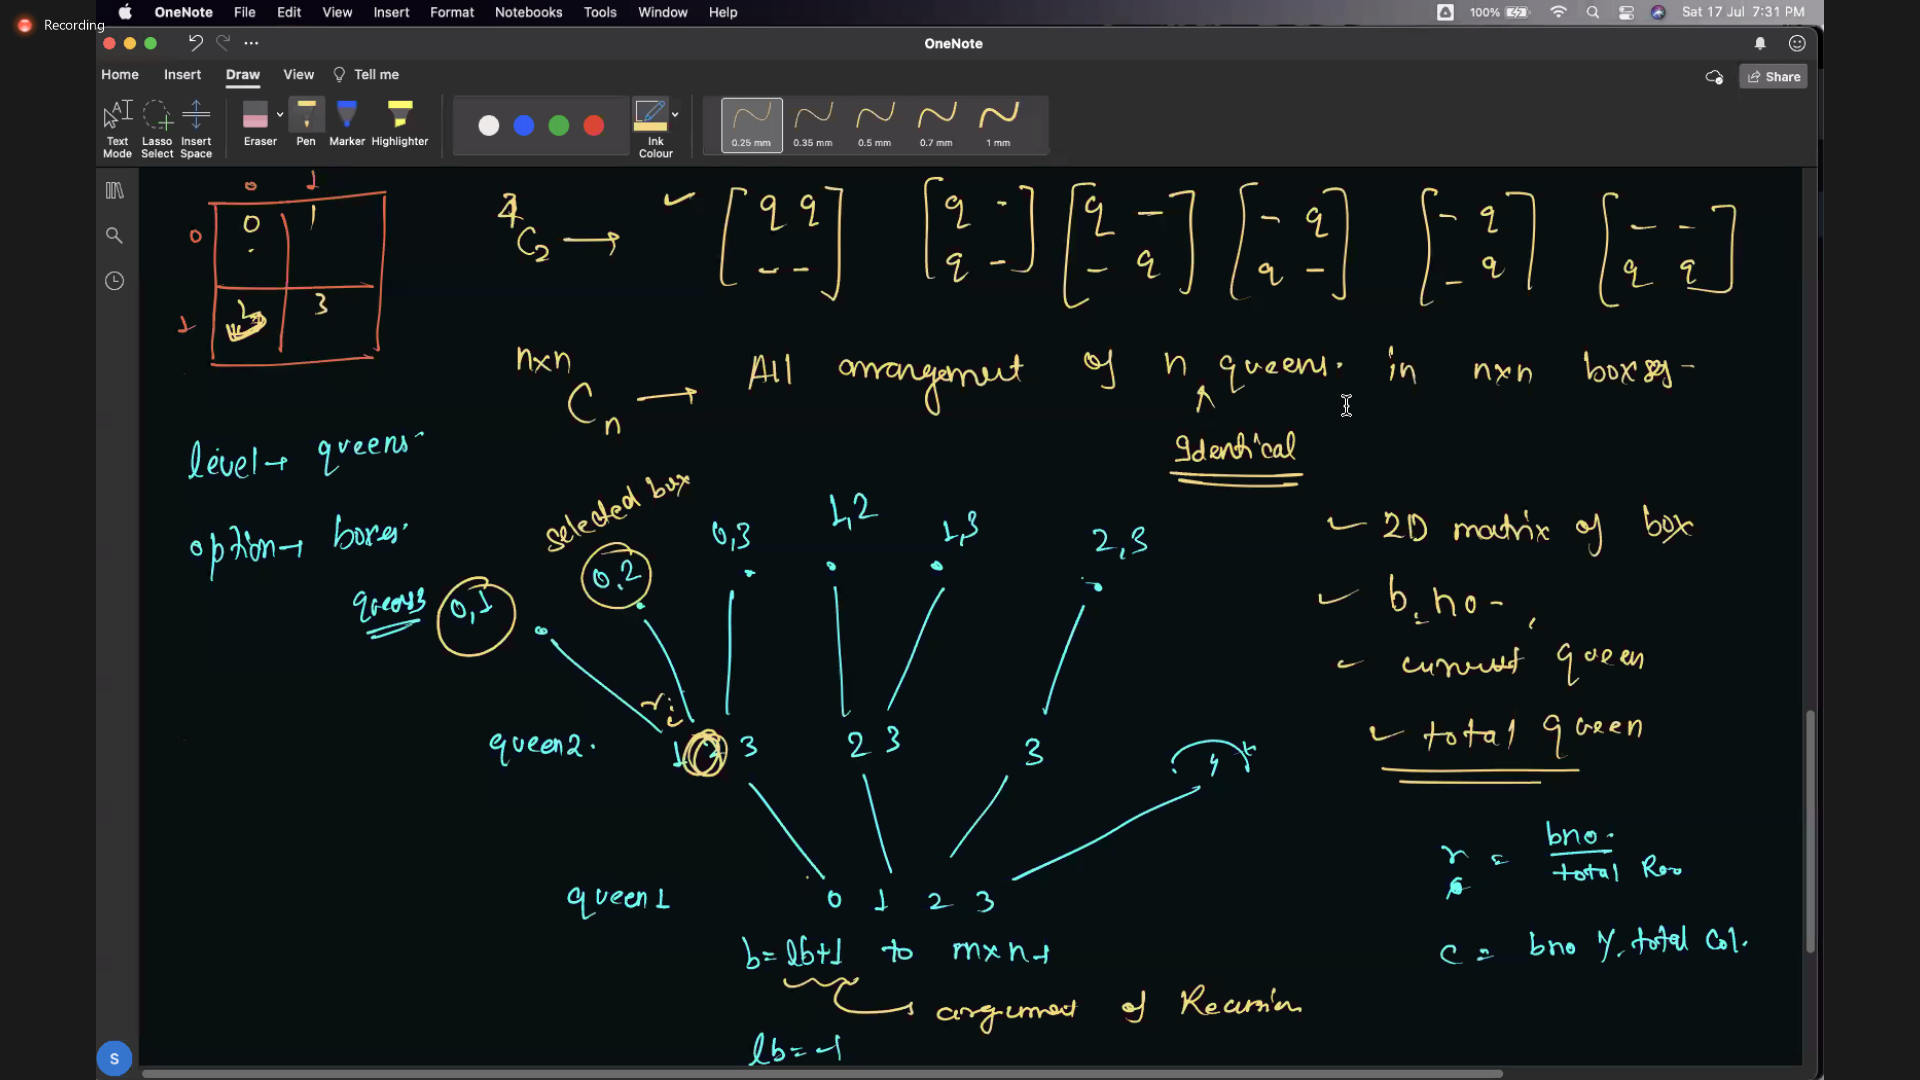 Recording
OneNote File Edit View Insert Format Notebooks Tools Window Help
100% Sat 17 Jul 7:31 PM
OneNote
Home Insert Draw View Tell me
Share
Text Mode
Lasso Select
Insert Space
Eraser
Pen
Marker
Highlighter
Ink Colour
0.25 mm
0.35 mm
0.5 mm
0.7 mm
1 mm
0 1
0 0 1
1 3
4C2 →
q q
- -
q -
q -
q -
- q
- q
q -
- q
- q
- -
q q
nxn C n → All arrangement of n queens. in nxn boxes-
Identical
level → queens.
option → boxes.
selected box
queen3
0,1
0,2
0,3
1,2
1,3
2,3
2D matrix of box
b.no-,
current queen
total queen
queen2.
1 2 3
2 3
3
4
queen1
0 1 2 3
b= lb+1 to mxn-1
argument of Recursion
lb= -1
r = bno. / total Row
c = bno % total Col.
S